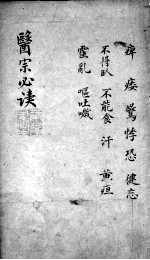 痺 痿 驚 悸 恐 健忘
不得臥 不能食 汗 黃疸
霍亂 嘔吐噦
醫宗必讀